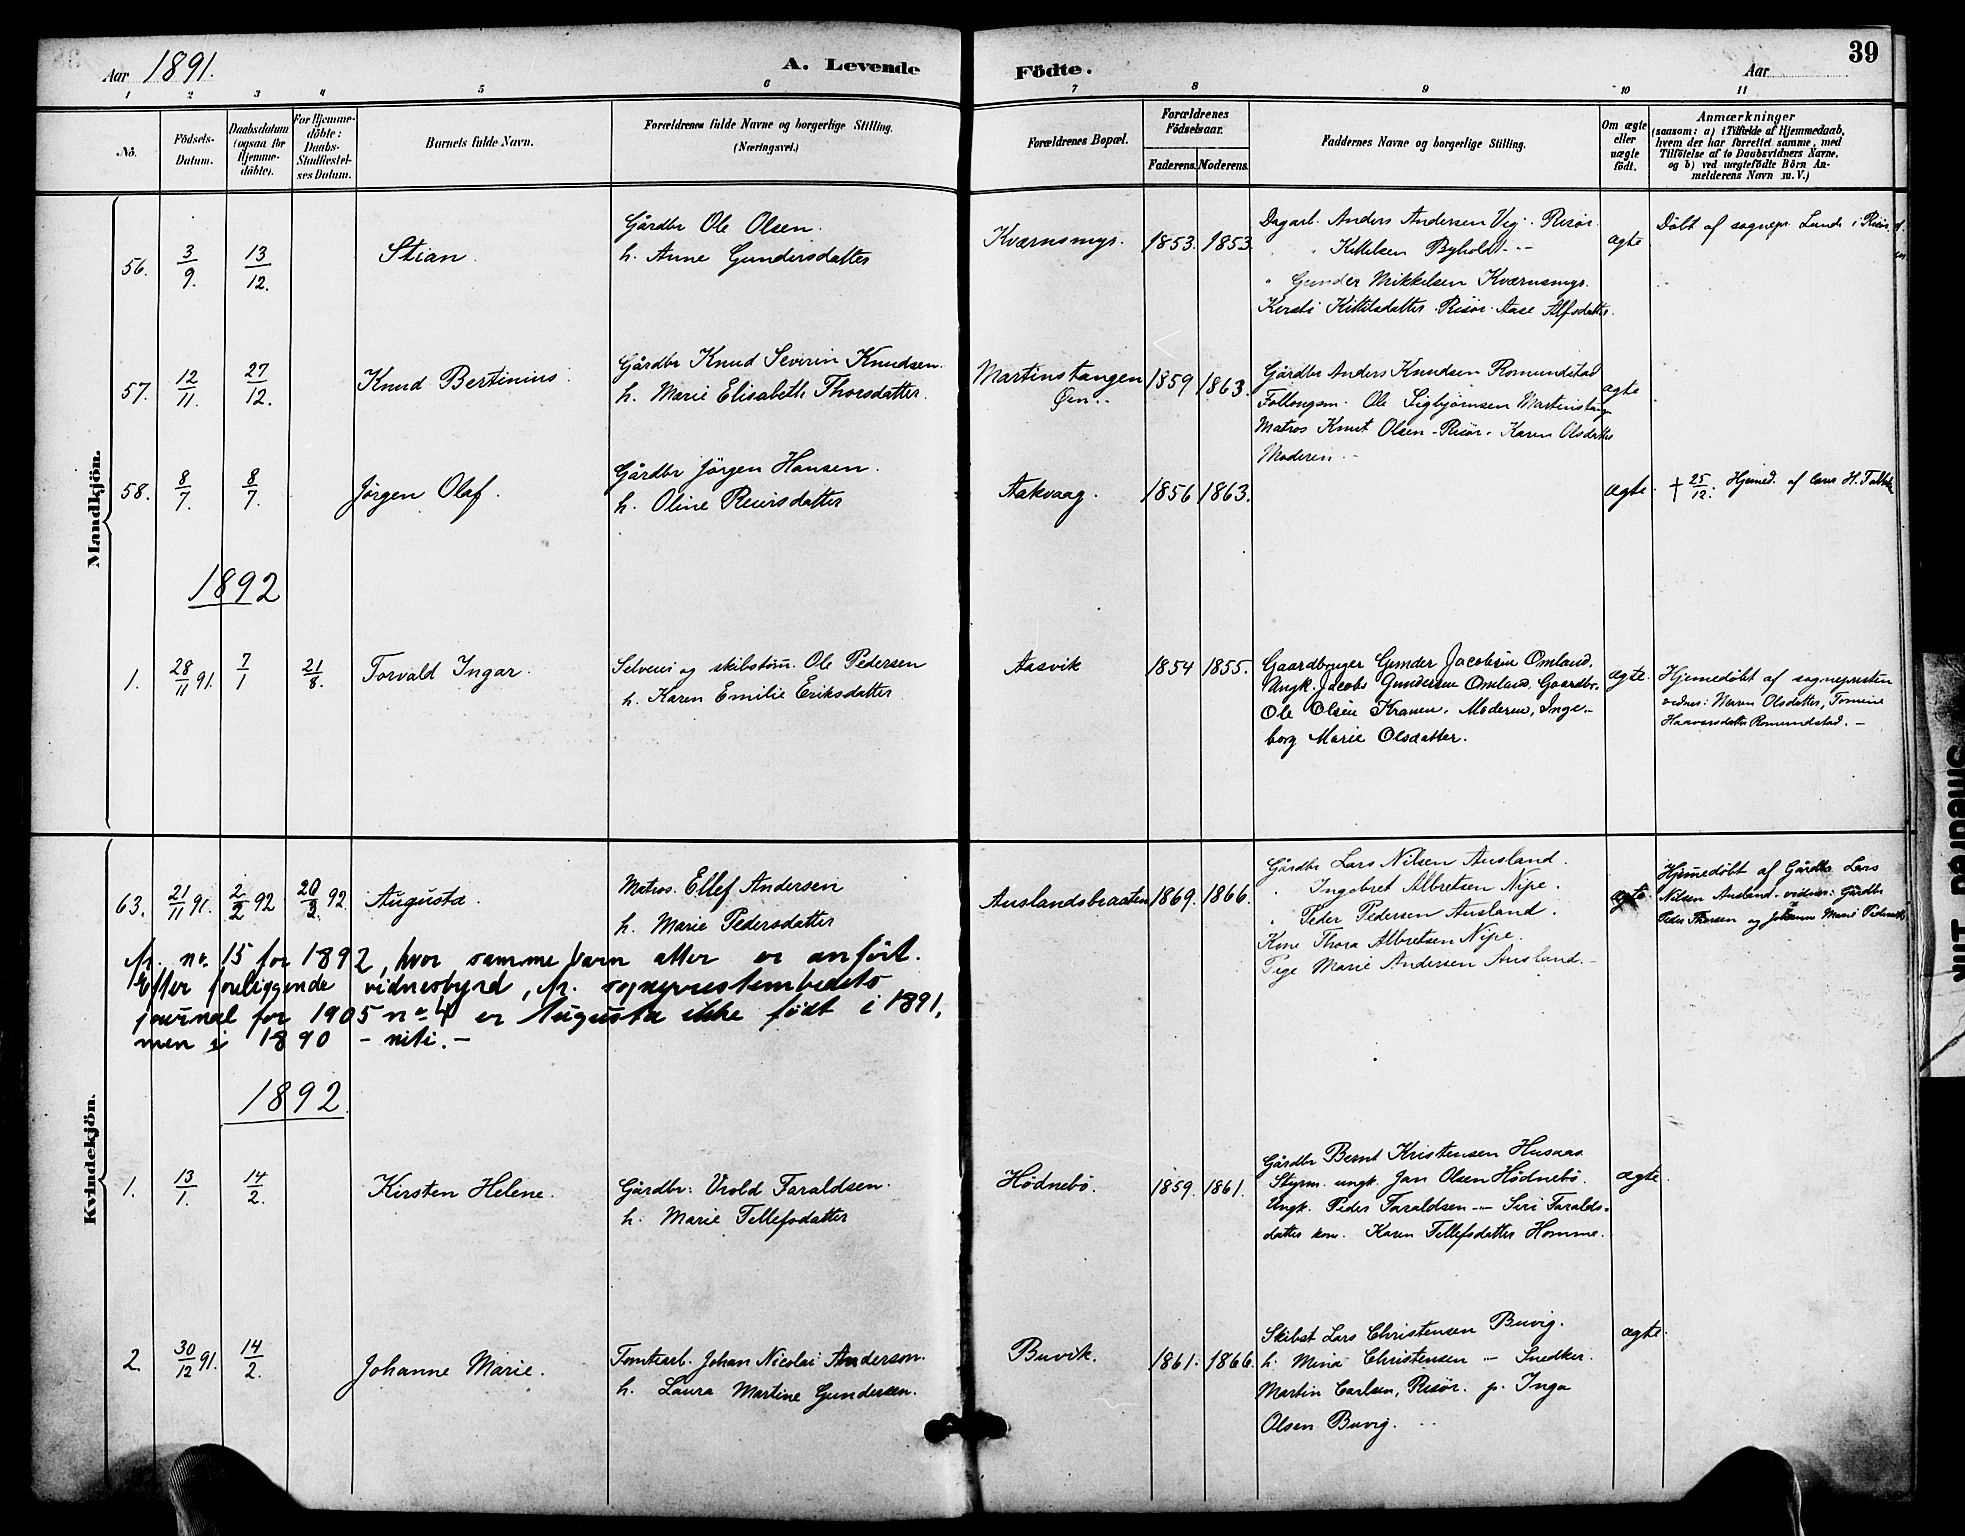 39
Aar 1891.
A. Levende Födte.
Aar
1 2 3 4 5 6 7 8 9 10 11
No.
Födsels-Datum.
Daabsdatum (ogsaa for Hjemme-döbte).
For Hjemme-döbte: Daabs-Stadfæstel-ses Datum.
Barnets fulde Navn.
Forældrenes fulde Navne og borgerlige Stilling. (Næringsvei.)
Forældrenes Bopæl.
Forældrenes Födselsaar.
Faderens. Moderens.
Faddernes Navne og borgerlige Stilling.
Om ægte eller uægte födt.
Anmærkninger
(saasom: a) i Tilfælde af Hjemmedaab,
hvem der har forrettet samme, med
Tilföielse af to Daabsvidners Navne,
og b) ved uægtefödte Börn An-
melderens Navn m. V.)
Mandkjön.
56. 3/9. 13/12. Stian.
Gårdbr Ole Olsen.
h. Anne Gundersdatter
Kværnsmyr. 1853. 1853.
Dagarb. Anders Andersen Vej. Risør.
" Kittelsen Byholdt
" Gunder Mikkelsen Kværnsmyr.
Kersti Kittilsdatter. Risør. Aase Alfsdatter.
ægte
Døbt af sognepr. Lunde i Risør
57. 12/11. 27/12. Knud Bertinius.
Gårdbr Knud Severin Knudsen.
h. Marie Elisabeth Thorsdatter.
Martinstangen
Øen.
1859 1863.
Gårdbr Anders Knudsen Romundstad
Ole Sigbjørnsen Martinstang
Matros Knut Olsen - Risør. Karen Olsdatter
Moderen
ægte
58. 8/7. 8/7. Jørgen Olaf.
Gårdbr Jørgen Hansen.
h. Oline Reiersdatter
Aakvaag. 1856 1863.
ægte.
† 25/12. Hjemed. af Lars H.
1892
1. 28/11 91. 7/1 21/8. Torvald Ingar.
Selveier og skibstøm. Ole Pedersen
h. Karen Emilie Eriksdatter.
Aasvik 1854 1855.
Gaardbruger Gunder Jacobsen Omland,
Ungk. Jacob Gundersen Omland, Gaardbr.
Ole Olsen Kranen, Moderen, Inge-
borg Marie Olsdatter.
ægte.
Hjemedøbt af sognepresten
vidner: Maren Olsdatter, Tomine
Haavorsdatter Romundstad. -
Kvindekjön.
63. 21/11 91. 2/2 92 20/3. 92. Augusta.
Matros. Ellef Andersen
h. Marie Pedersdatter
Auslandsbraaten 1869. 1866.
Gårdbr Lars Nilsen Ausland.
" Ingebret Albretsen Nipe.
" Peder Pedersen Ausland.
Kone Thora Albretsen Nipe.
Pige Marie Andersen Ausland. -
ægte
Hjemedøbt af Gårdbr Lars
Nilsen Ausland. vidner: Gårdbr
Peder Thorsen og Johanne Marie
fr. no. 15 for 1892, hvor samme barn atter er anført.
Efter foreliggende vidnesbyrd, fr. sogneprestembedets
journal for 1905 no 4 er Augusta ikke født i 1891,
men i 1890 - niti. -
1892
1. 13/1. 14/2. Kirsten Helene.
Gårdbr. Vrold Faraldsen.
h. Marie Tellefsdatter
Hødnebø. 1859. 1861.
Gårdbr Bernt Kristensen Husaas
Styrm. ungk. Jan Olsen Hødnebø.
Ungk. Peder Faraldsen - Siri Faralds-
datter kone. Karen Tellefsdatter Homme.
ægte.
2. 30/12 91. 14/2. Johanne Marie.
Tomtearb. Johan Nicolai Anderson.
h. Laura Martine Gundersen.
Buvik. 1861. 1866.
Skibst Lars Christensen Buvig.
h. Mina Christensen - Snedker.
Martin Carlsen, Risør. p. Inga
Olsen Buvig.
ægte.